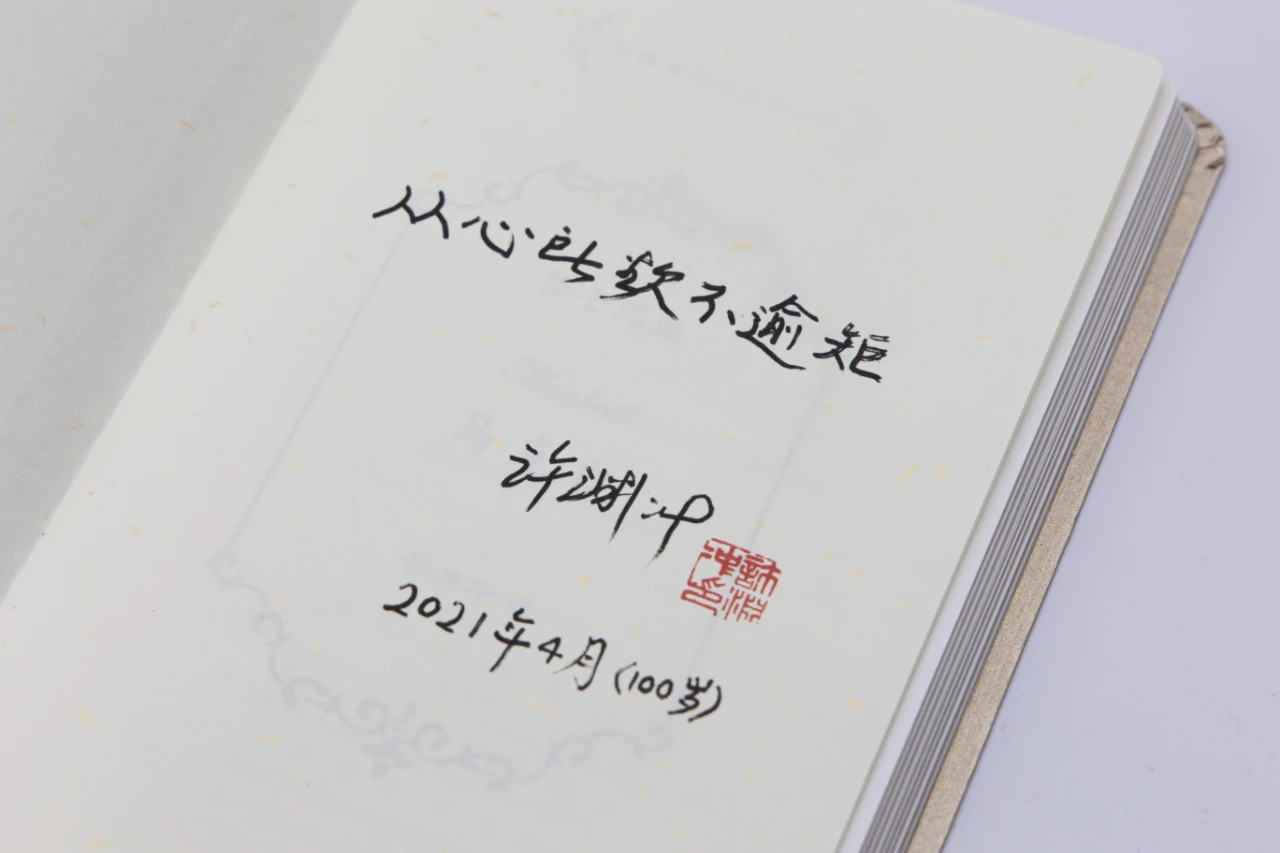 从心所欲不逾矩
许渊冲
許淵冲印
2021年4月(100岁)